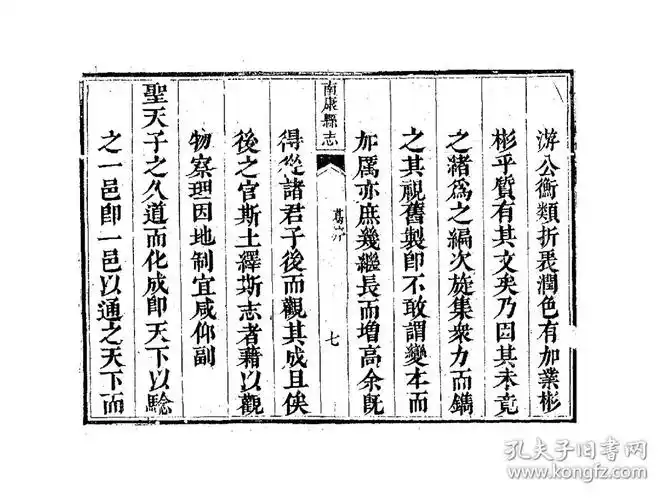 游公衡類折衷潤色有加業彬
彬乎質有其文矣乃因其未竟
之緒爲之編次旋集衆力而鐫
之其視舊製卽不敢謂變本而
加厲亦庶幾繼長而增高余旣
南康縣志
葛序
七
得從諸君子後而觀其成且俟
後之官斯土繹斯志者藉以觀
物察理因地制宜咸仰副
聖天子之久道而化成卽天下以驗
之一邑卽一邑以通之天下而
孔夫子旧书网
www.kongfz.com